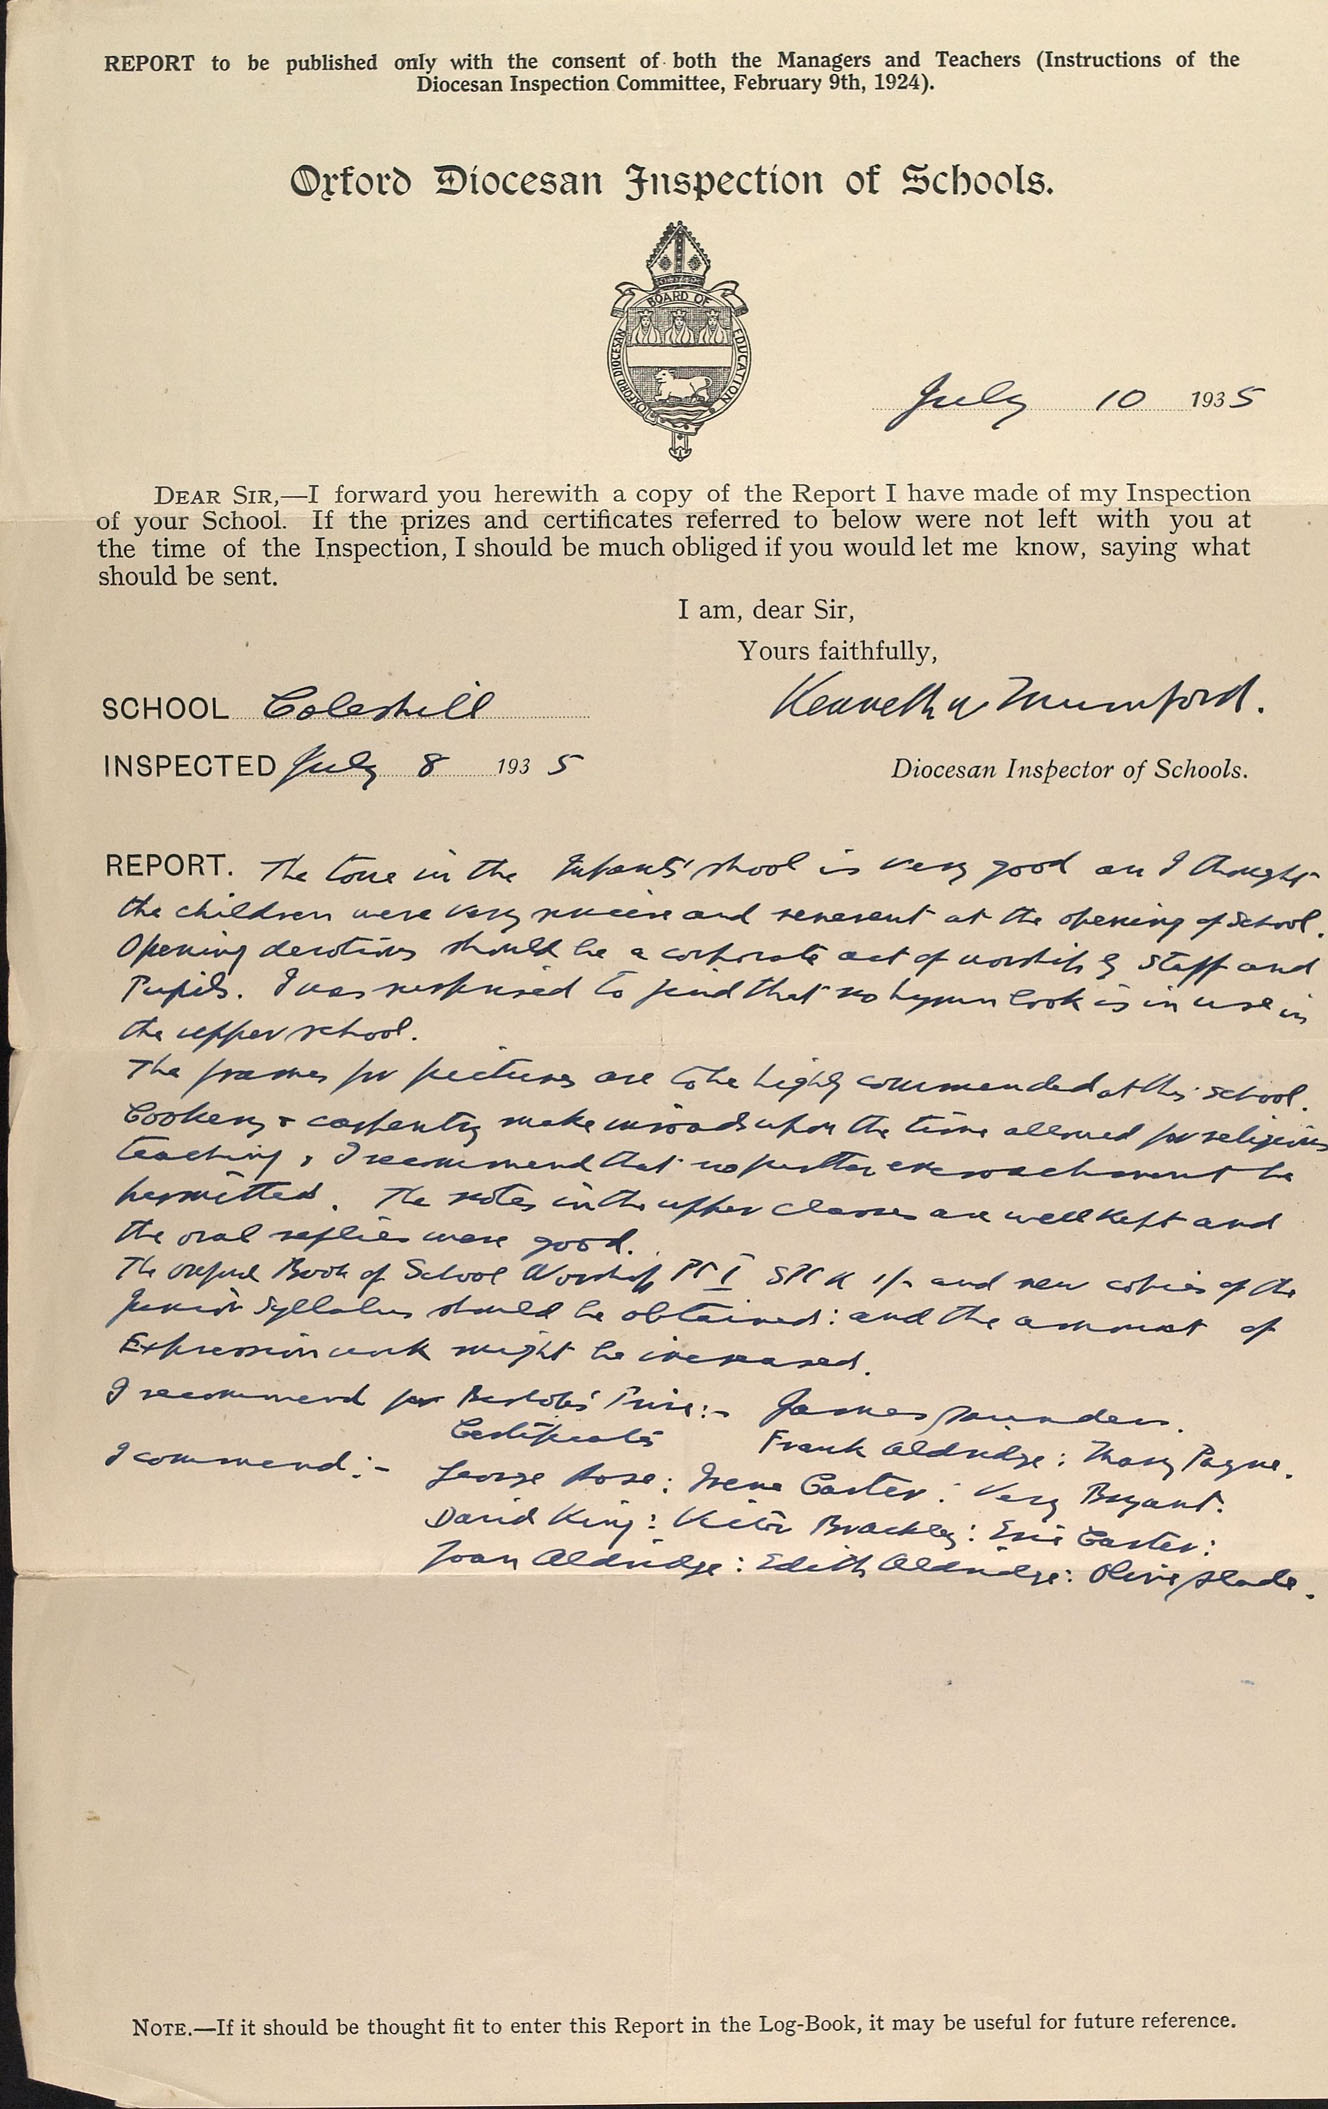 REPORT to be published only with the consent of both the Managers and Teachers (Instructions of the
Diocesan Inspection Committee, February 9th, 1924).
Oxford Diocesan Inspection of Schools.
BOARD OF
OXFORD DIOCESAN
EDUCATION
July 10 1935
DEAR SIR,—I forward you herewith a copy of the Report I have made of my Inspection
of your School. If the prizes and certificates referred to below were not left with you at
the time of the Inspection, I should be much obliged if you would let me know, saying what
should be sent.
I am, dear Sir,
Yours faithfully,
SCHOOL Coleshill
Kenneth W Mumford.
INSPECTED July 8 1935
Diocesan Inspector of Schools.
REPORT. The tone in the Infants' school is very good and I thought
the children were very sincere and reverent at the opening of School.
Opening devotions should be a corporate act of worship by Staff and
Pupils. I was surprised to find that no hymn book is in use in
the upper school.
The frames for pictures are to be highly commended at this school.
Cookery & carpentry make inroads upon the time allowed for religious
teaching, I recommend that no further encroachment be
permitted. The notes in the upper classes are well kept and
the oral replies were good.
The Oxford Book of School Worship Pt I SPCK 1/- and new copies of the
Junior Syllabus should be obtained: and the amount of
Expression work might be increased.
I recommend for Bishop's Prize:- James Saunders.
Certificates Frank Aldridge: Mary Payne.
I commend:- George Rose: Irene Carter: Very Bryant:
David King: Victor Brackley: Eric Carter:
Joan Aldridge: Edith Aldridge: Olive Slade.
NOTE.—If it should be thought fit to enter this Report in the Log-Book, it may be useful for future reference.